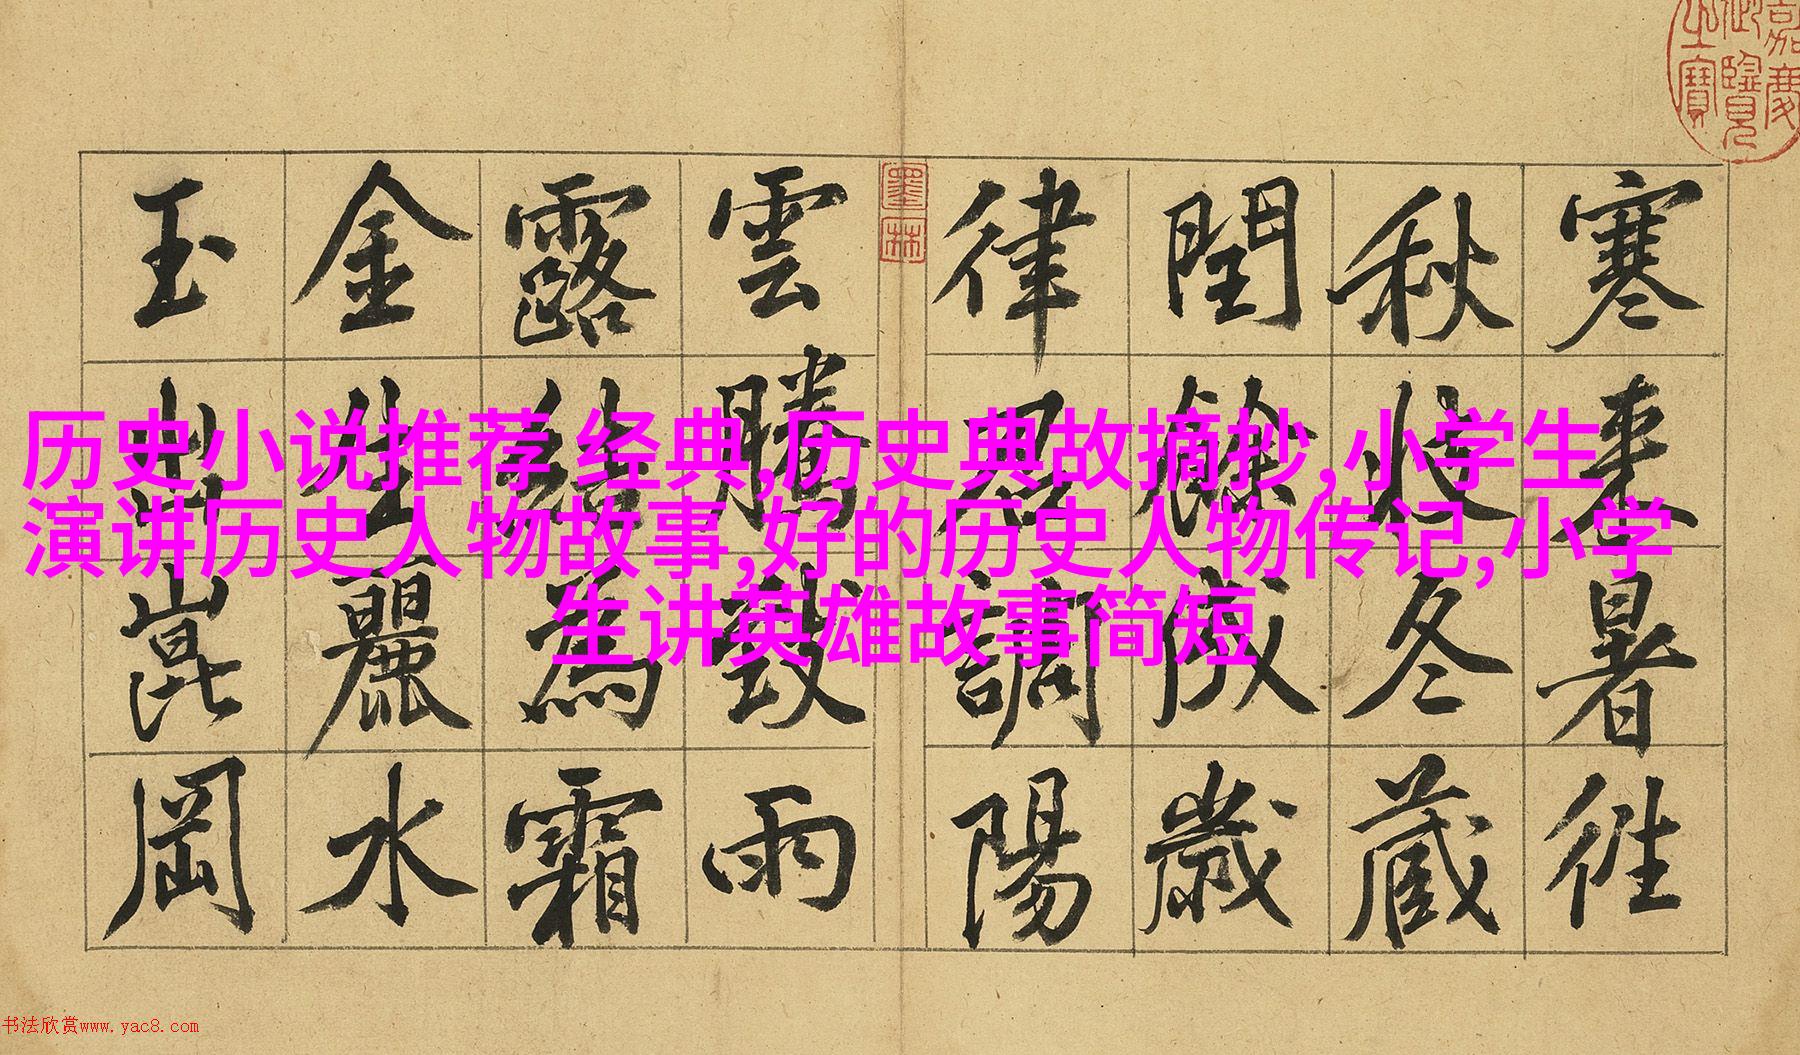 嘉慶
御覽
之寶
寒來暑往
秋收冬藏
閏餘成歲
律呂調陽
墨林
雲騰致雨
露結為霜
金生麗水
玉出崑岡
历史小说推荐 经典,历史典故摘抄,小学生
演讲历史人物故事,好的历史人物传记,小学
生讲英雄故事简短
书法欣赏www.yac8.com